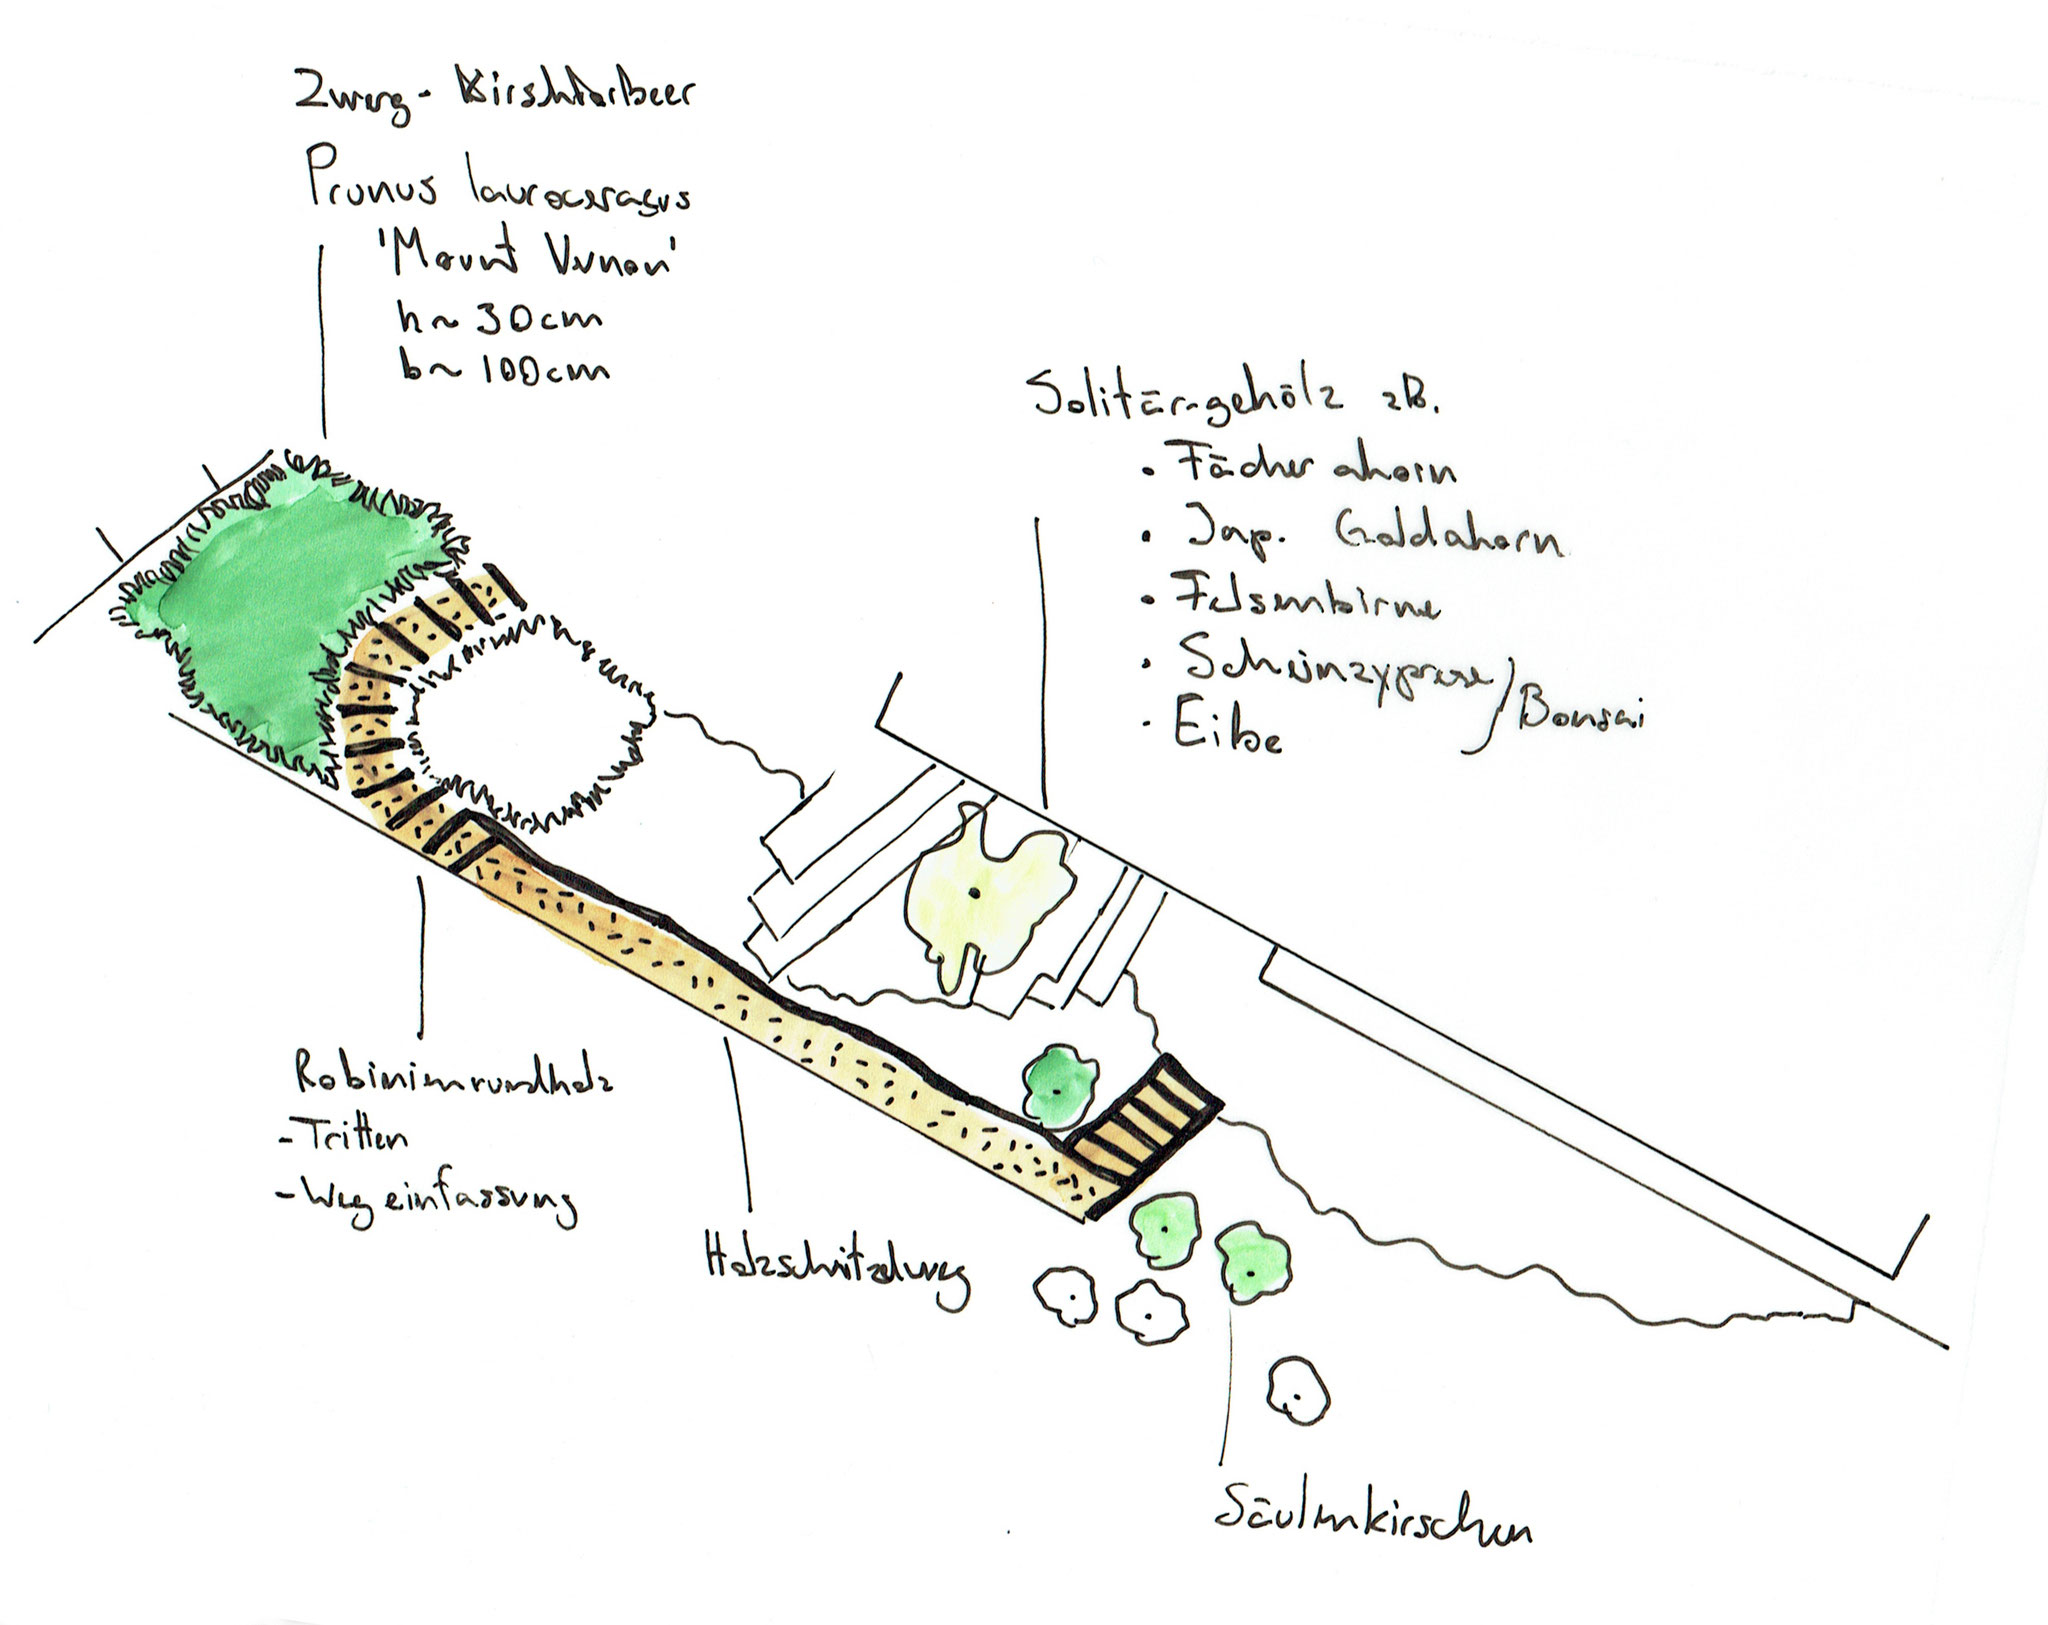 Zwerg- Kirschlorbeer
Prunus laurocerasus
'Mount Vernon'
h~ 30cm
b~ 100cm
Solitär-gehölz zB.
• Fächerahorn
• Jap. Goldahorn
• Felsenbirne
• Scheinzypresse
• Eibe
Bonsai
Robinienrundholz
- Tritten
- Wegeinfassung
Holzschnitzelweg
Säulenkirschen